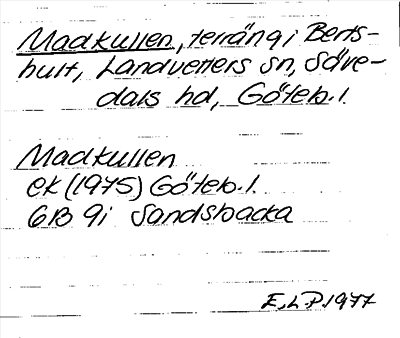 Madkullen, terräng i Berts-
hult, Landvetters sn, Säve-
dals hd, Göteb. l.
Madkullen
ek (1975) Göteb. l.
6B 9i Sandsbacka
E. L-P. 1977